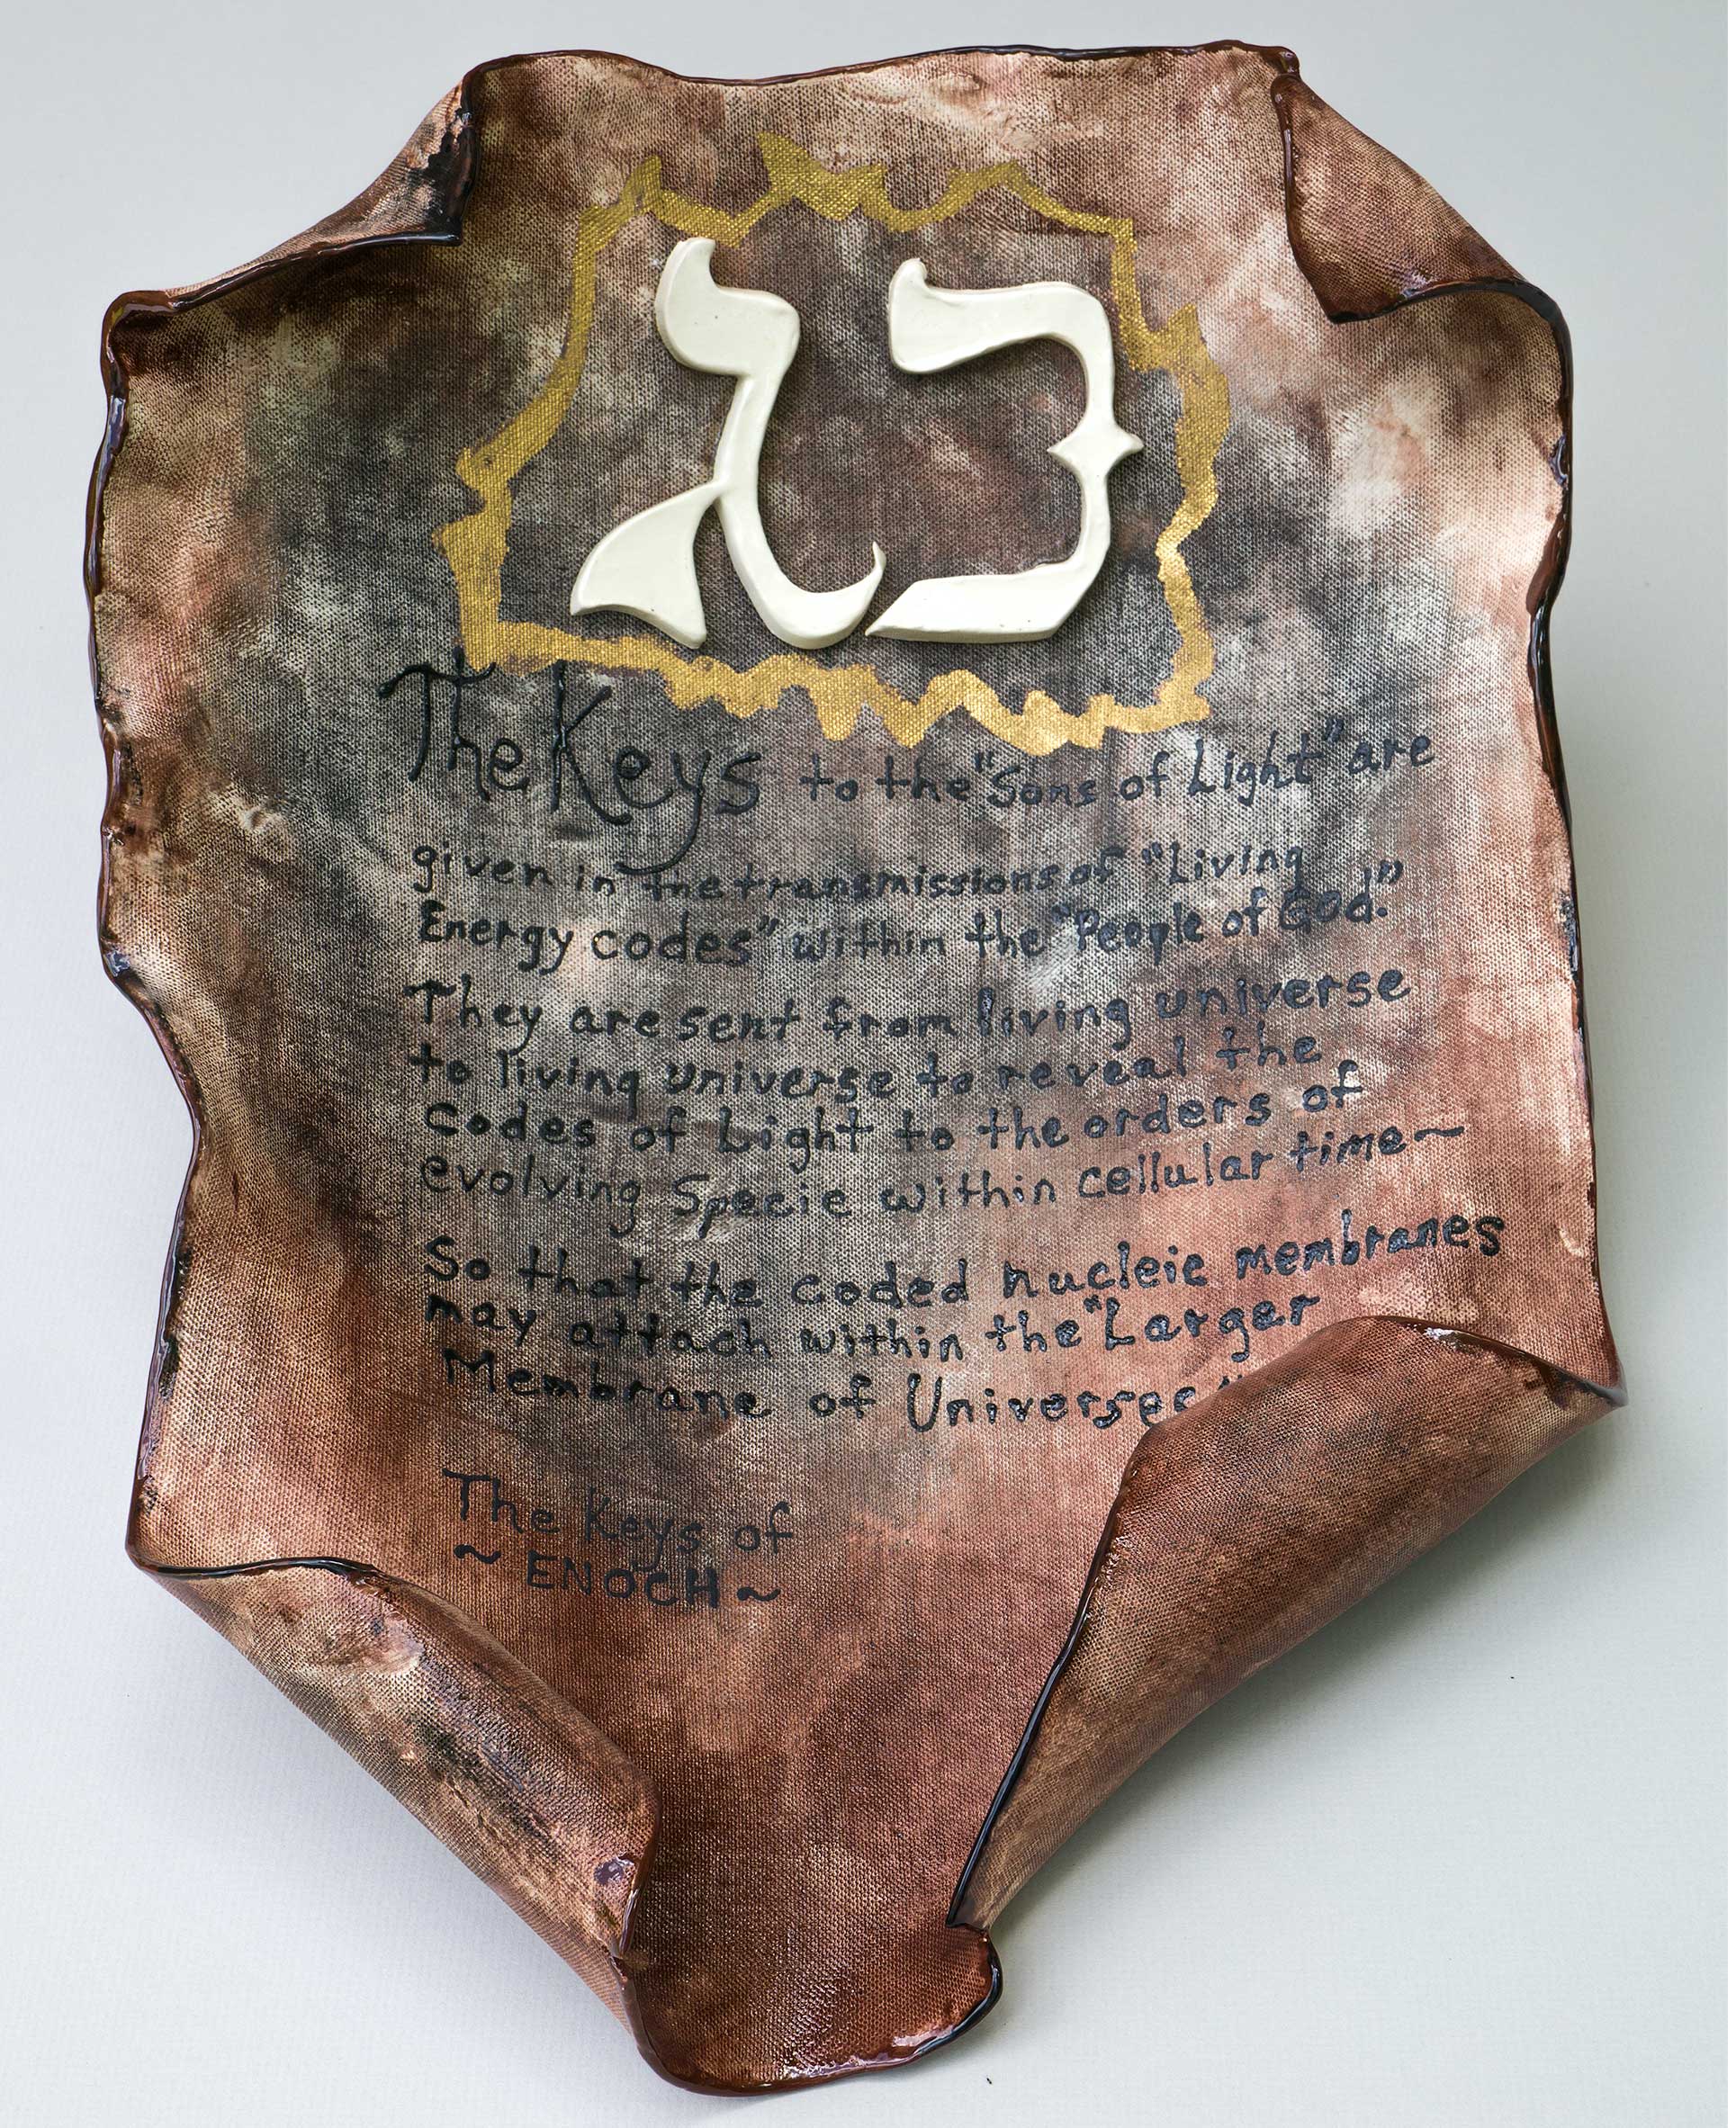 כג
The Keys to the "Sons of Light" are
given in the transmissions of "Living
Energy codes" within the "People of God."
They are sent from living universe
to living universe to reveal the
Codes of Light to the orders of
evolving Specie within cellular time~
So that the coded nucleic membranes
may attach within the "Larger
Membrane of Universes"
The Keys of
~ ENOCH ~